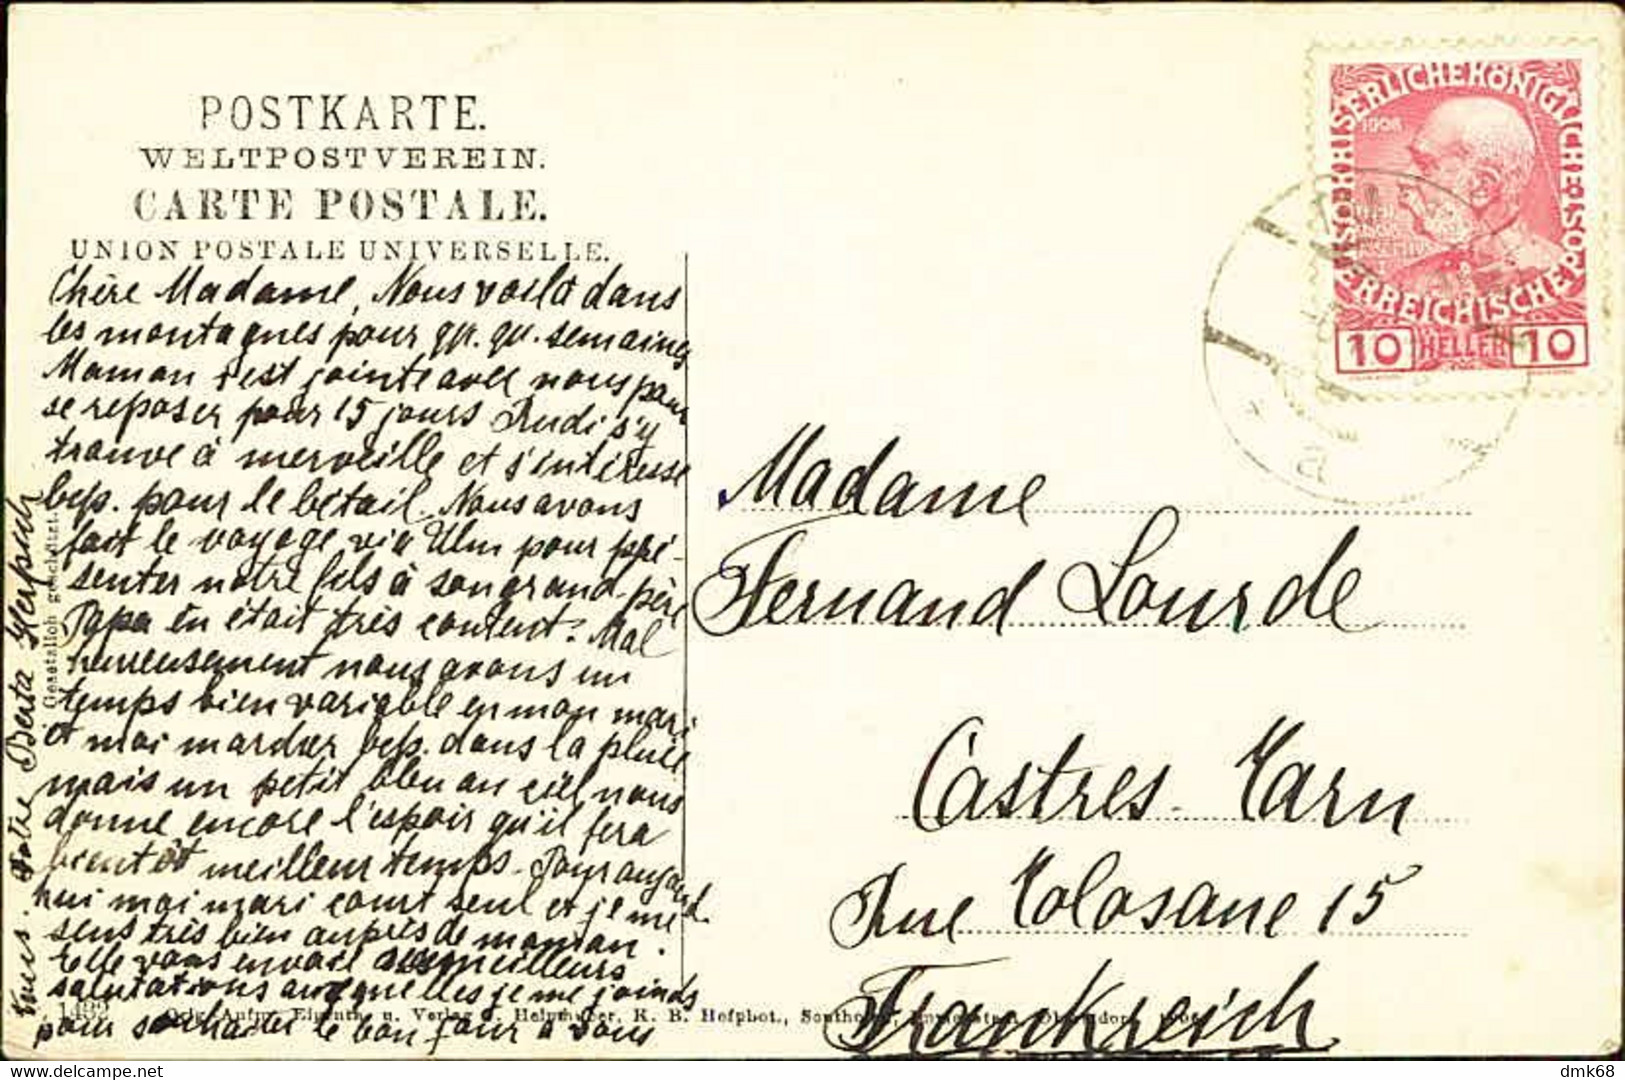 POSTKARTE.
WELTPOSTVEREIN.
CARTE POSTALE.
UNION POSTALE UNIVERSELLE.
Chère Madame, Nous voilà dans
les montagnes pour qq. qu. semaines
Maman s'est jointe avec nous pour
se reposer pour 15 jours Rudi s'y
trouve à merveille et s'intéresse
bcp. pour le bétail. Nous avons
fait le voyage via Ulm pour pré-
senter notre fils à son grand-père
Papa en était très content. Mal
heureusement nous avons un
temps bien variable en mon mari
et moi marcher bcp. dans la pluie
mais un petit bleu au ciel nous
donne encore l'espoir qu'il fera
bientôt meilleur temps. Pour aujourd
hui moi mari court seul et je me
sens très bien auprès de maman.
Elle vous envoie ses meilleurs
salutations auxquelles je me joinds
pour souhaiter le bon jour à vous
tous. Votre Berta Herpich
Gesetzlich geschützt.
1432 Orig.-Aufn., Eigenth. u. Verlag K. B. Hofphot.,
KAISERLICHE KÖNIGLICHE ÖSTERREICHISCHE POST
1908
10 HELLER 10
a
Madame
Fernand Lourde
Castres-Tarn
Rue Tolosane 15
Frankreich
dmk68